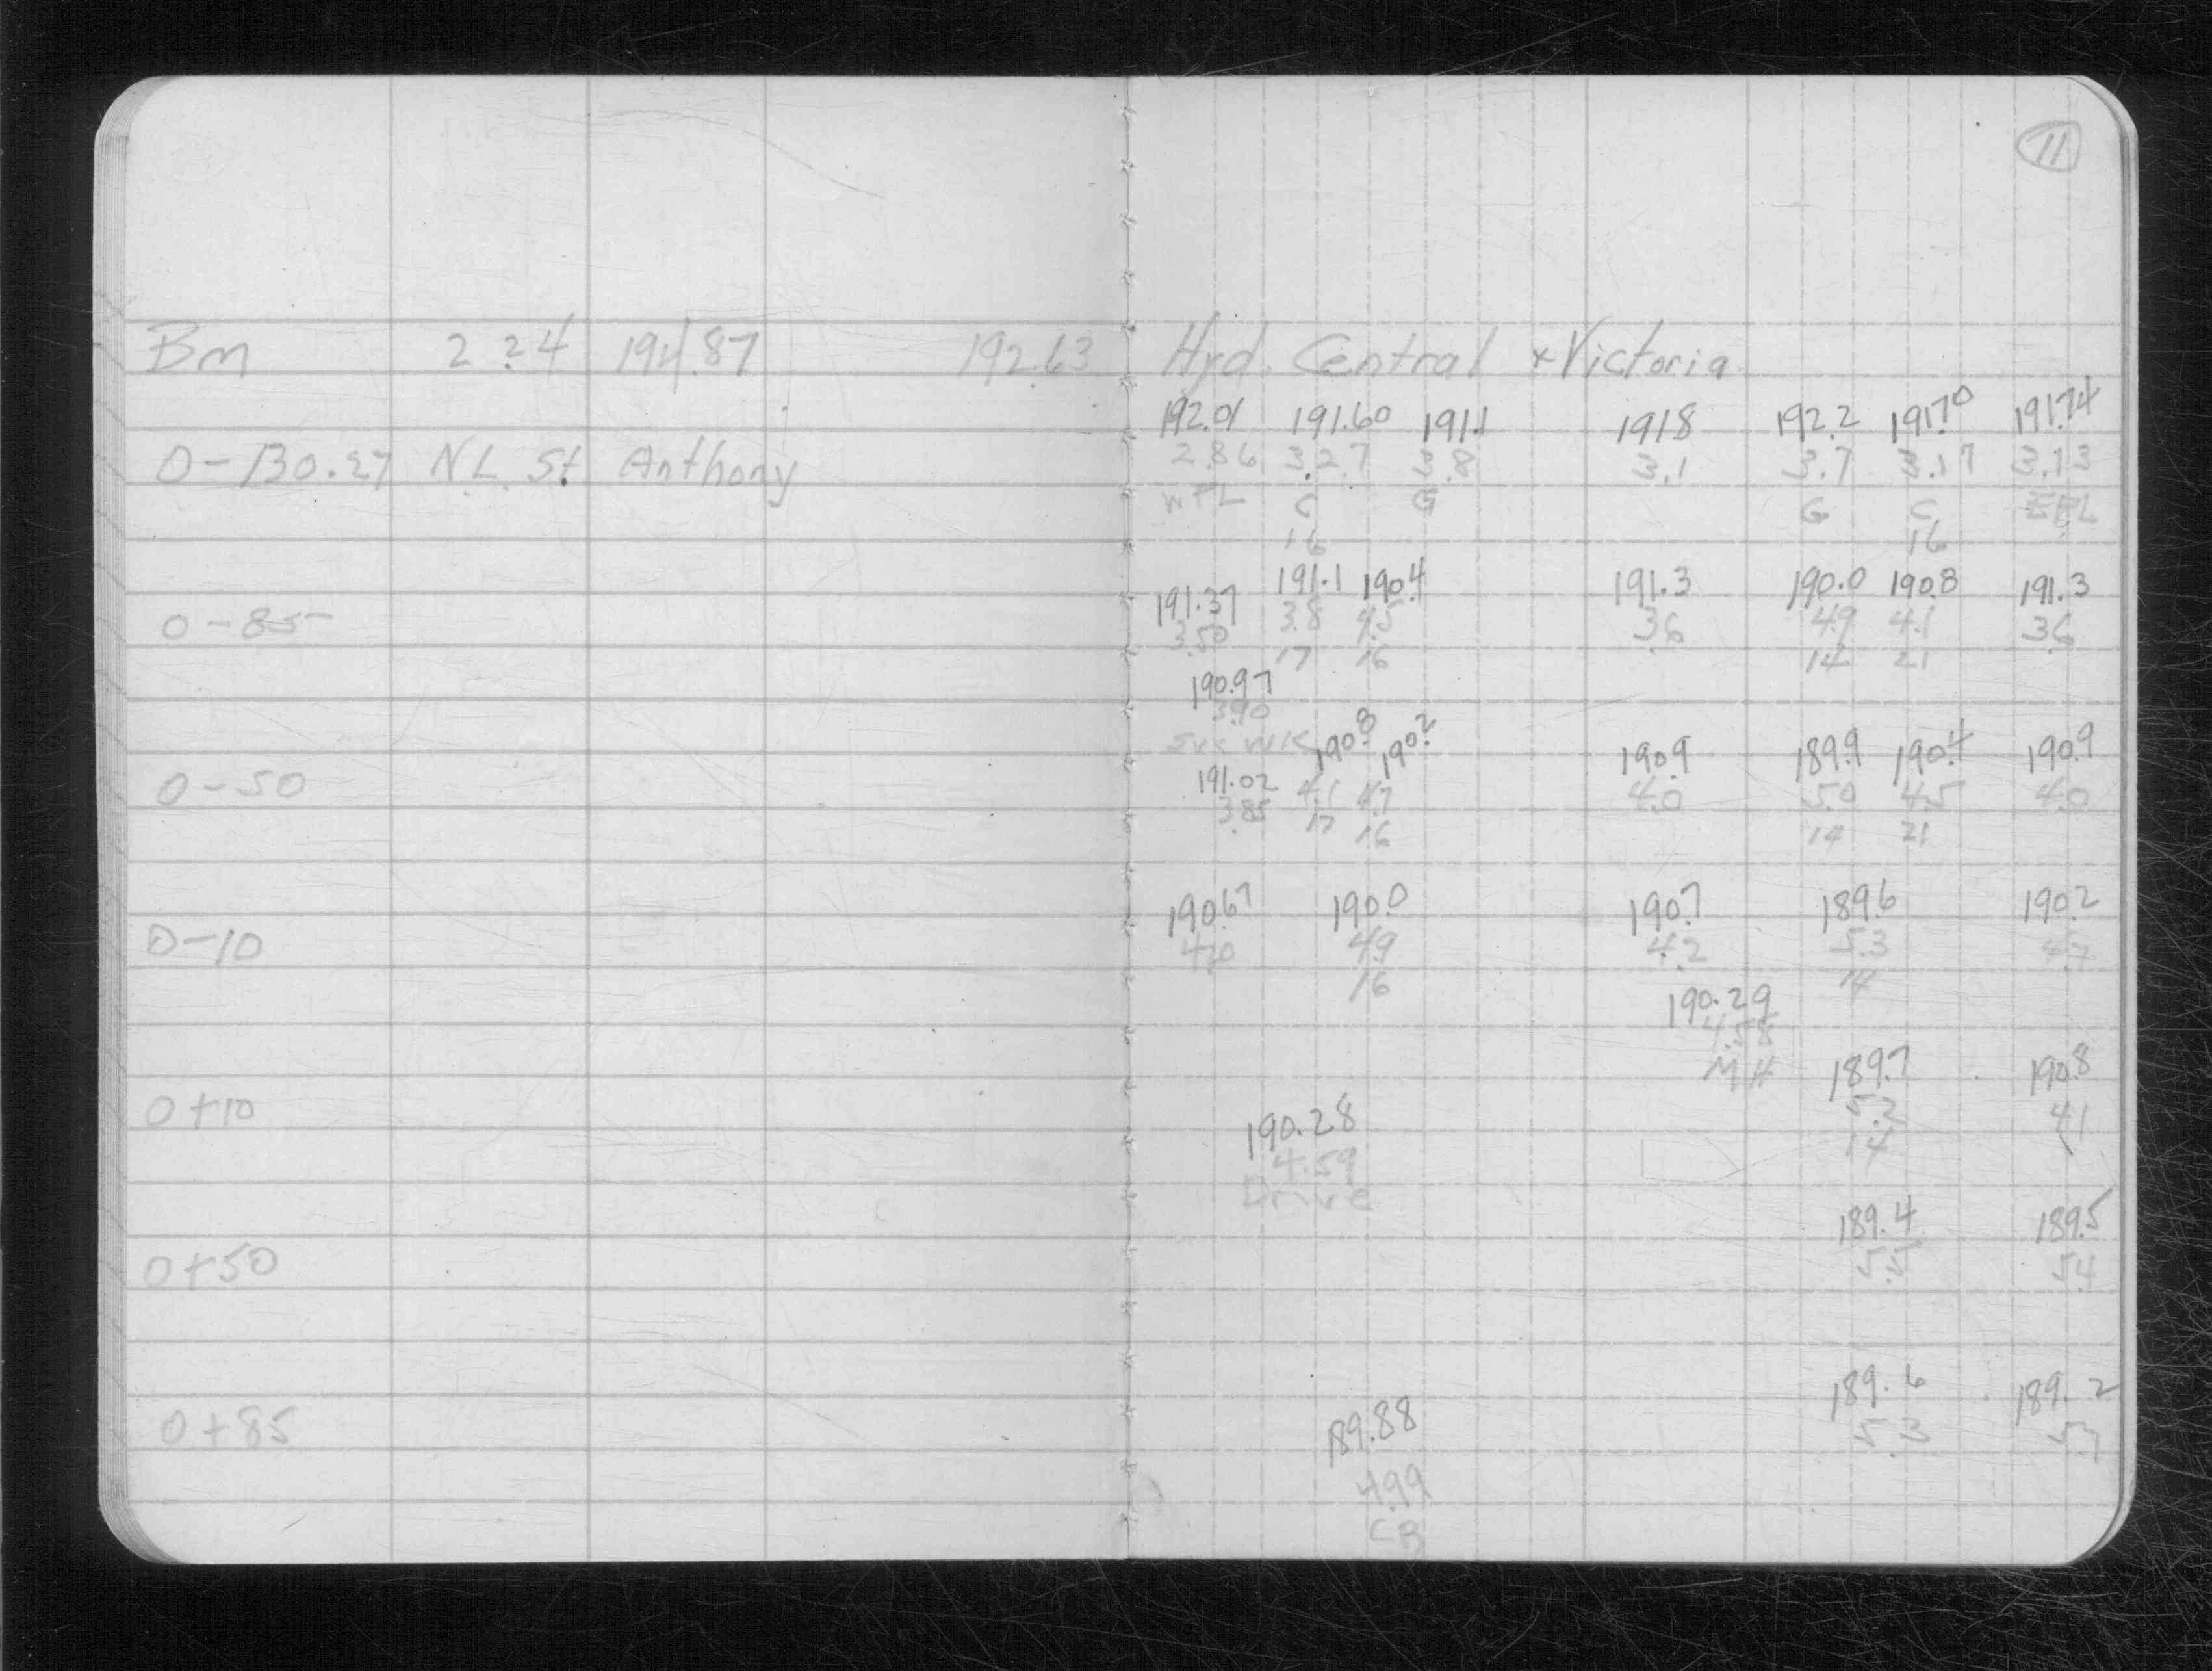 11
Bm 2.24 194.87 192.63 Hyd. Central & Victoria
192.01 191.60 191.1 191.8 192.2 191.70 191.74
0-130.27 N.L. St Anthony 2.86 3.27 3.8 3.1 3.7 3.17 3.13
WPL C G G C EPL
16 16
191.37 191.1 190.4 191.3 190.0 190.8 191.3
0-85 3.50 3.8 4.5 3.6 4.9 4.1 3.6
17 16 14 21
190.97
3.90
Svc WK 190.8 190.2 190.9 189.9 190.4 190.9
191.02
0-50 3.85 4.1 4.7 4.0 5.0 4.5 4.0
17 16 14 21
190.67 190.0 190.7 189.6 190.2
0-10 4.20 4.9 4.2 5.3 4.7
16 14
190.29
4.58
MH 189.7 190.8
0+10 5.2 4.1
190.28 14
4.59
Drive
189.4 189.5
0+50 5.5 5.4
189.6 189.2
0+85 189.88 5.3 5.7
4.99
CB